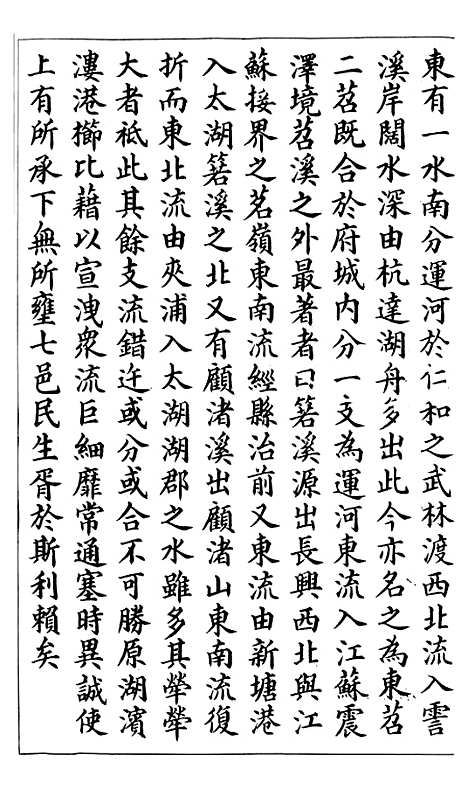 東有一水南分運河於仁和之武林渡西北流入霅
溪岸闊水深由杭達湖舟多出此今亦名之為東苕
二苕既合於府城内分一支為運河東流入江蘇震
澤境苕溪之外最著者曰箬溪源出長興西北與江
蘇接界之茗嶺東南流經縣治前又東流由新塘港
入太湖箬溪之北又有顧渚溪出顧渚山東南流復
折而東北流由夾浦入太湖湖郡之水雖多其犖犖
大者祇此其餘支流錯迕或分或合不可勝原湖濱
漊港櫛比藉以宣洩衆流巨細靡常通塞時異誠使
上有所承下無所壅七邑民生胥於斯利賴矣